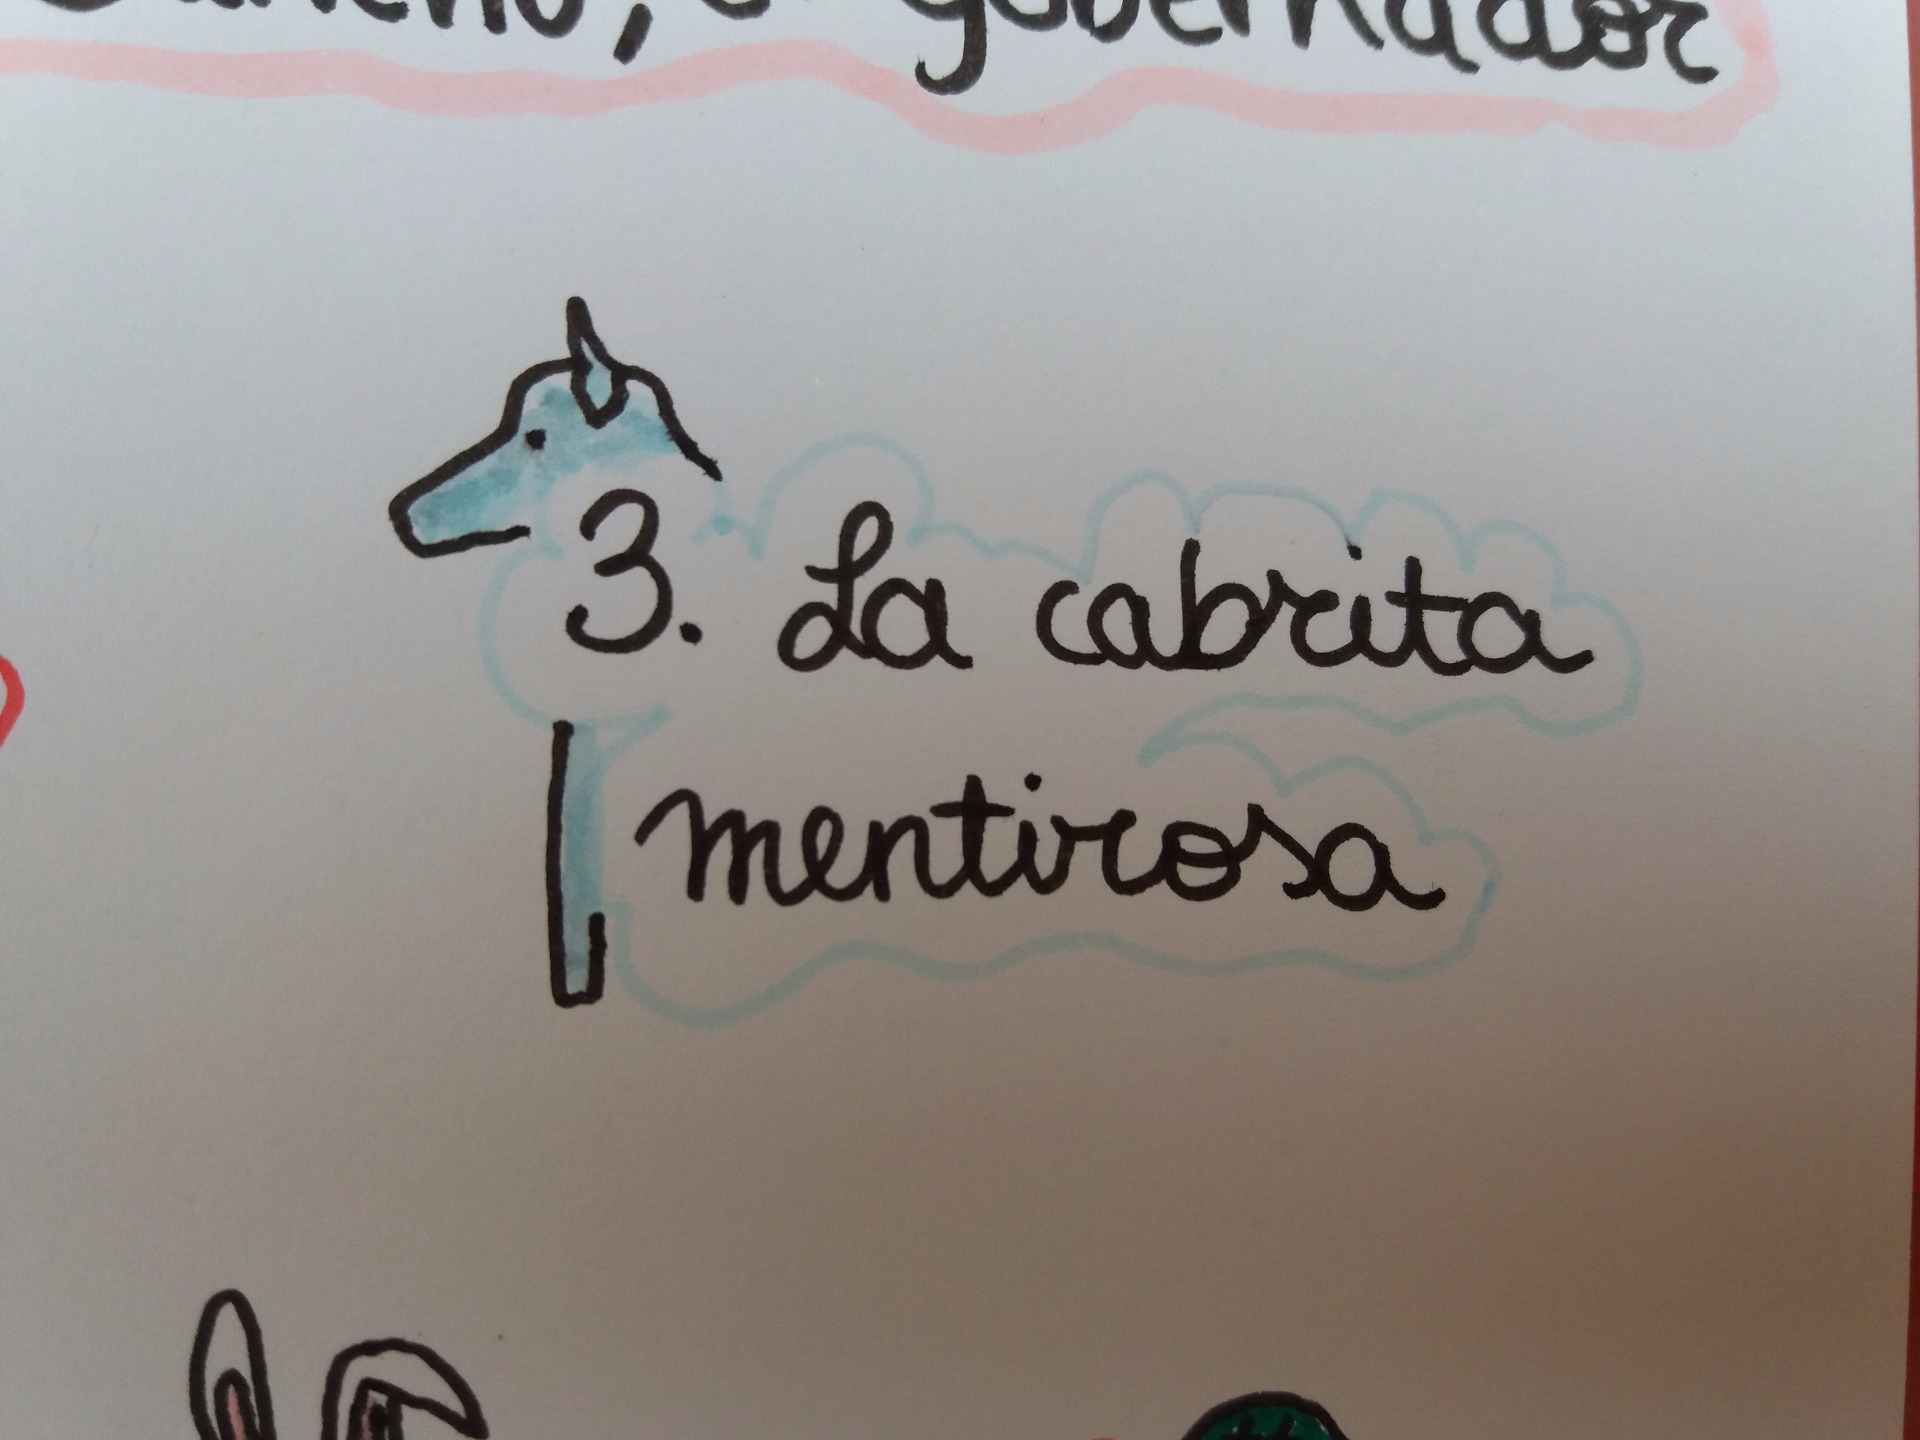 Sancho, el gobernador
3. La cabrita
mentirosa